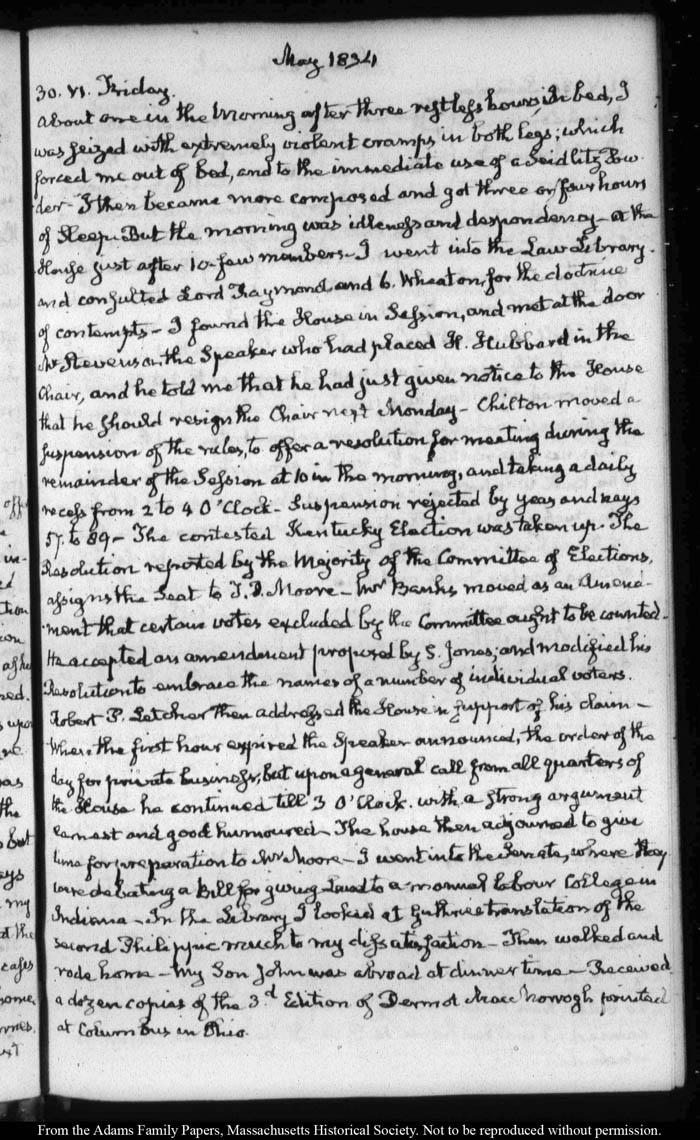 May 1834
30. VI. Friday.
About one in the Morning after three restless hours in bed, I
was seized with extremely violent cramps, in both legs; which
forced me out of bed, and to the immediate use of a Seidlitz Pow-
der - I then became more composed and got three or four hours
of Sleep. But the morning was idleness and despondency - At the
House just after 10 - few members - I went into the Law Library.
and consulted Lord Raymond and 6. Wheaton, for the doctrine
of contempts - I found the House in Session, and met at the door
Mr Stevenson the Speaker who had placed H. Hubbard in the
Chair, and he told me that he had just given notice to the House
that he should resign the Chair next Monday - Chilton moved a
suspension of the rules, to offer a resolution for meeting during the
remainder of the Session at 10 in the morning, and taking a daily
recess from 2 to 4 O'Clock - Suspension rejected by yeas and nays
57. to 89 - The contested Kentucky Election was taken up. The
Resolution reported by the Majority of the Committee of Elections,
assigns the Seat to T. P. Moore - Mr Banks moved as an Amend-
ment that certain votes excluded by the Committee ought to be counted.
He accepted an amendment proposed by S. Jones; and modified his
Resolution to embrace the names of a number of individual voters.
Robert P. Letcher then addressed the House in support of his claim -
When the first hour expired the Speaker announced, the order of the
day for private business; but upon a general call from all quarters of
the House he continued till 3 O'Clock. with a strong argument
earnest and good humoured - The house then adjourned to give
time for preparation to Mr Moore - I went into the Senate, where they
were debating a Bill for giving Land to a manual labour College in
Indiana - In the Library I looked at Guthries translation of the
second Philippic much to my dissatisfaction - Then walked and
rode home - My Son John was abroad at dinner time - Received
a dozen copies of the 3.d Edition of Dermot MacMorrogh printed
at Columbus in Ohio.
in-
tion
red.
upon
was
the
But
my
at the
cases
From the Adams Family Papers, Massachusetts Historical Society. Not to be reproduced without permission.